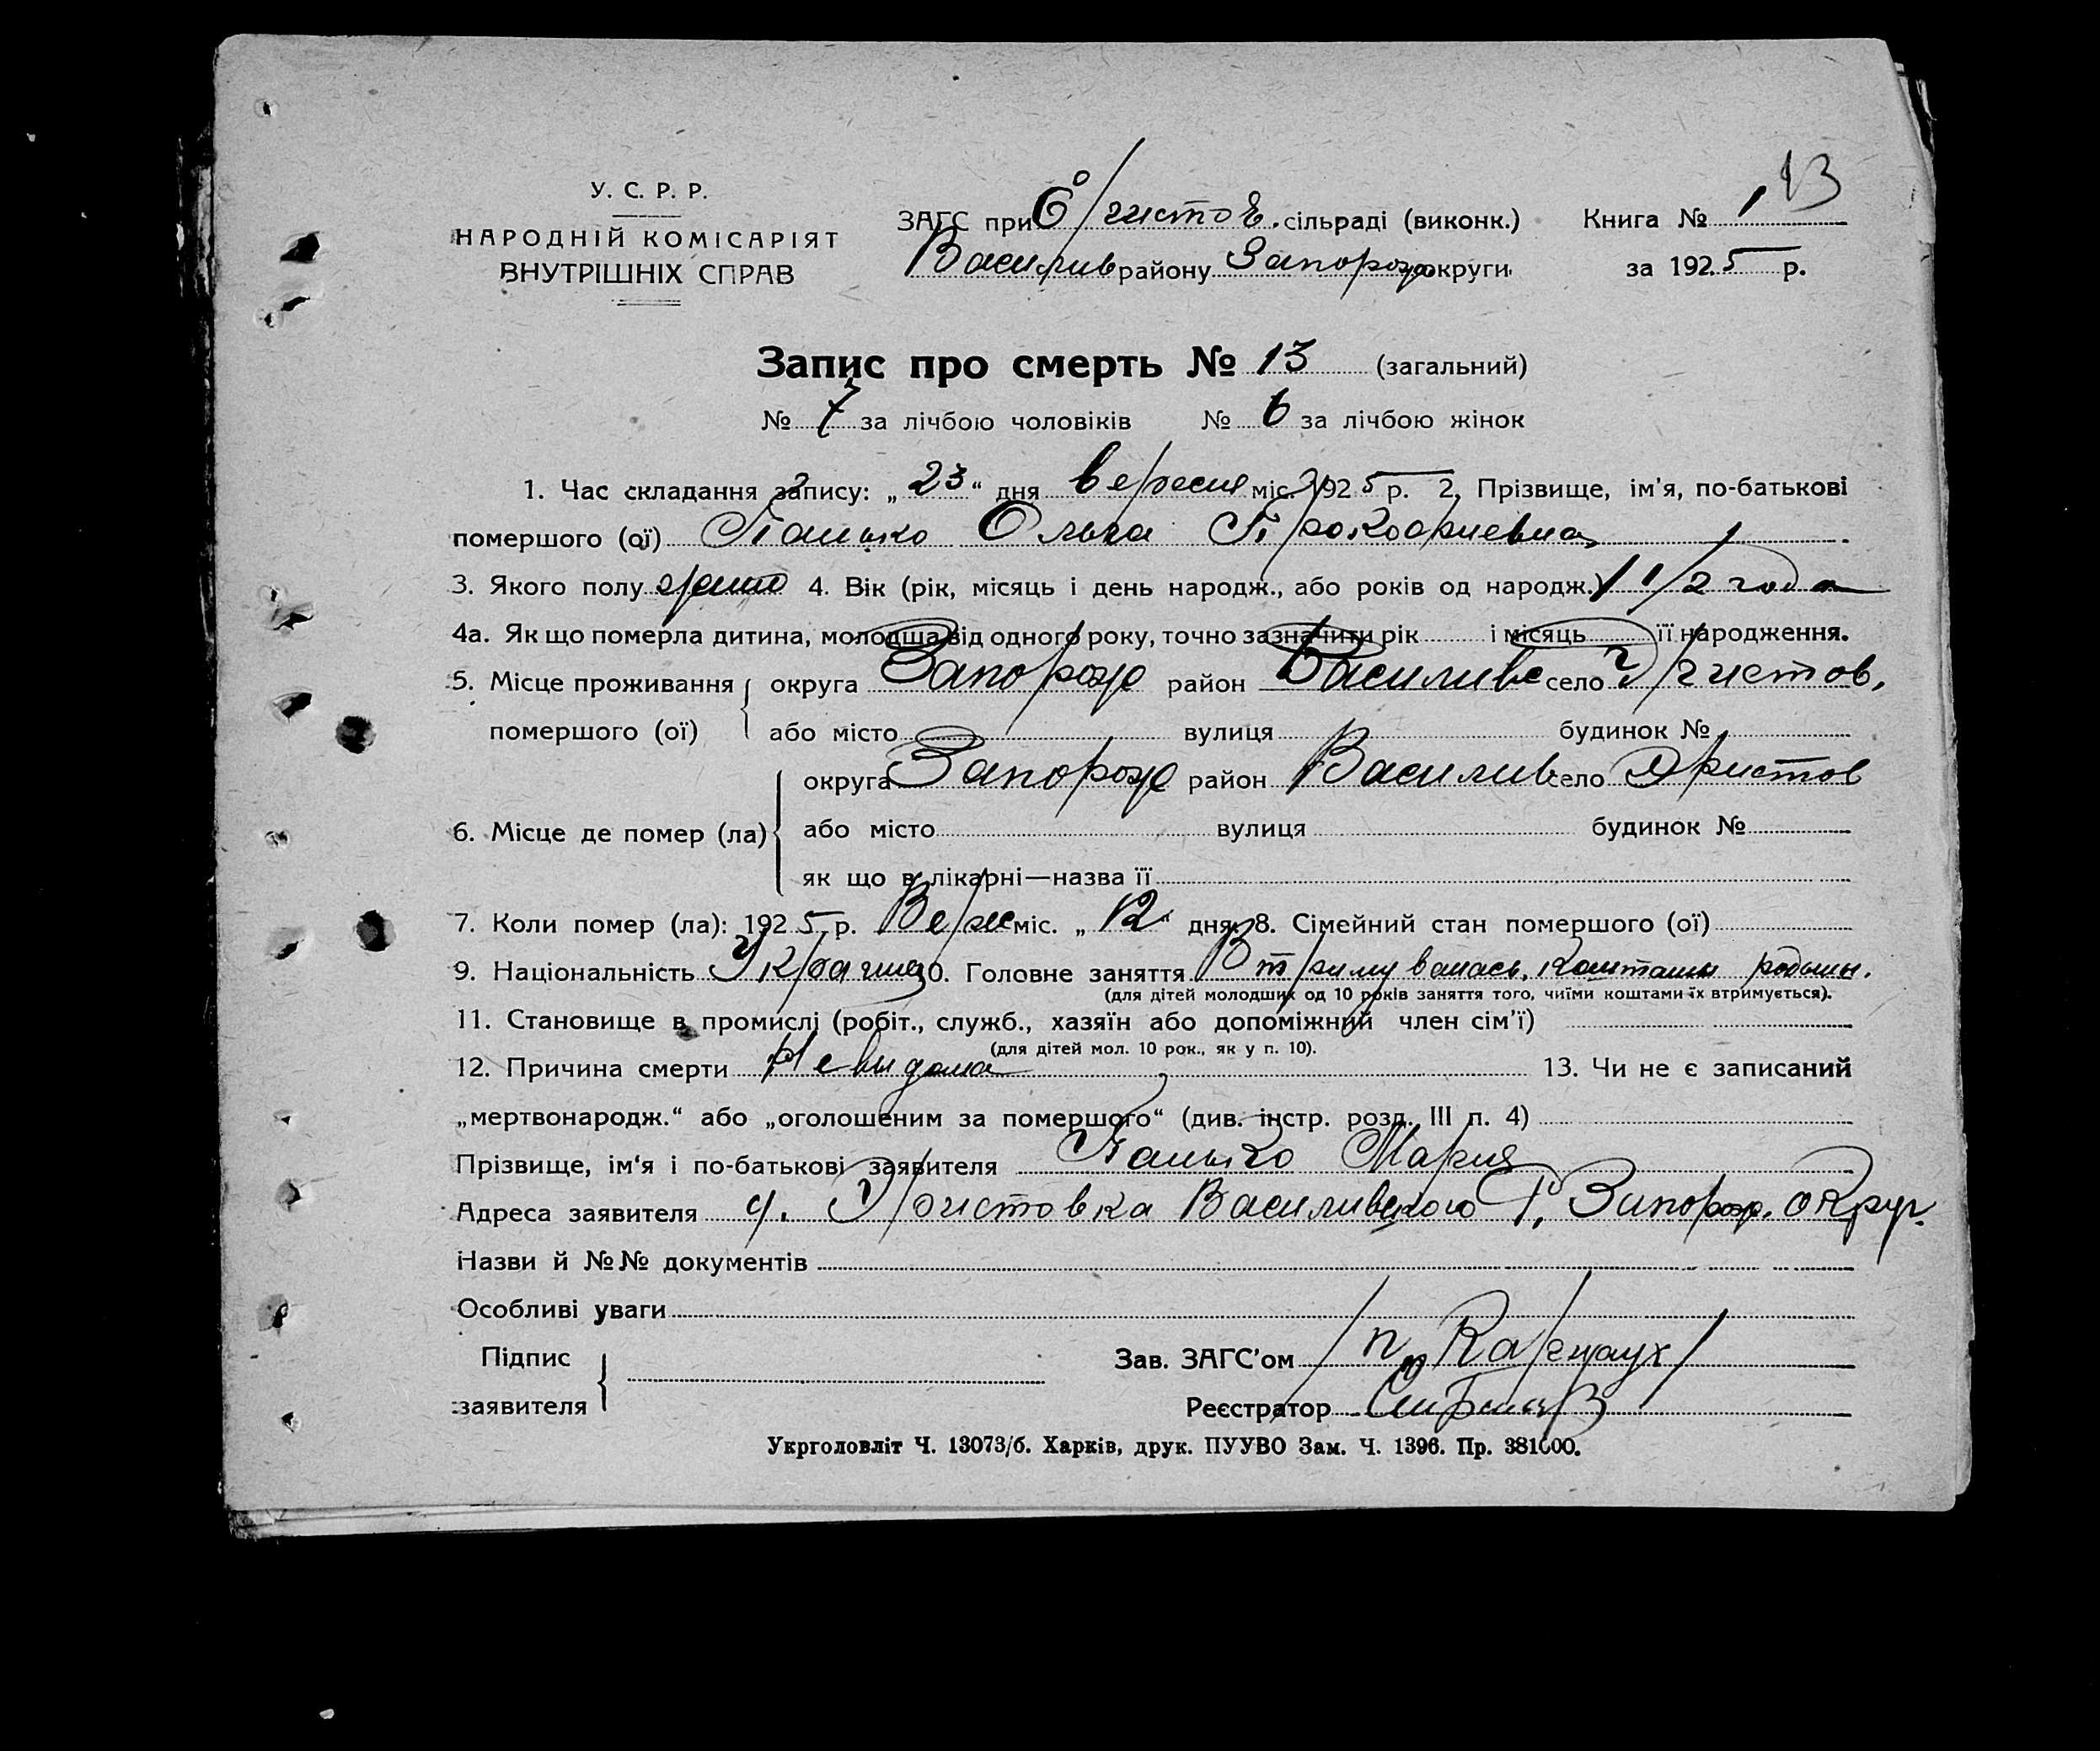 13
У. С. Р. Р.
НАРОДНІЙ КОМІСАРІЯТ
ВНУТРІШНІХ СПРАВ
ЗАГС при сільраді (виконк.) Книга № 1
Василив району Запорозо округи за 1925 р.
Запис про смерть № 13 (загальний)
№ 7 за лічбою чоловіків № 6 за лічбою жінок
1. Час складання запису: „ 23 “ дня вересня міс. 1925 р. 2. Прізвище, ім'я, по-батькові
помершого (ої) Панько Ольга Прокофиевна
3. Якого полу 4. Вік (рік, місяць і день народж., або років од народж.) 1 1/2 года
4а. Як що померла дитина, молодша від одного року, точно зазначити рік і місяць її народження.
5. Місце проживання округа Запорозо район Василивс село
помершого (ої) або місто вулиця будинок №
округа Запорозо район Василив село Христов
6. Місце де помер (ла) або місто вулиця будинок №
як що в лікарні—назва її
7. Коли помер (ла): 1925 р. Верес міс. „ 12 “ дня. 8. Сімейний стан помершого (ої)
9. Національність 10. Головне заняття Втримувалась коштами родыны.
(для дітей молодших од 10 років заняття того, чиїми коштами їх втримується).
11. Становище в промислі (робіт., служб., хазяїн або допоміжний член сім'ї)
(для дітей мол. 10 рок., як у п. 10).
12. Причина смерти Невидома 13. Чи не є записаний
„мертвонародж.“ або „оголошеним за помершого“ (див. інстр. розд. III п. 4)
Прізвище, ім'я і по-батькові заявителя Панько Мария
Адреса заявителя Христовка Василивского Р. Запорозр. округ.
Назви й №№ документів
Особливі уваги
Підпис Зав. ЗАГС'ом
заявителя Реєстратор
Укрголовліт Ч. 13073/б. Харків, друк. ПУУВО Зам. Ч. 1396. Пр. 381000.